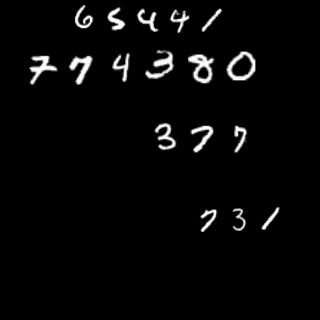 65441
774380
377
731